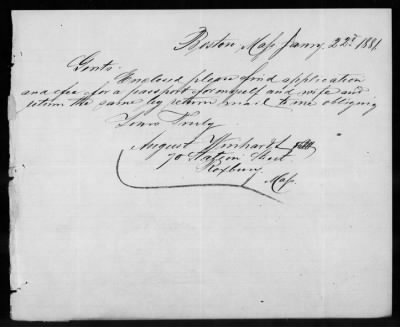 Boston, Mass Janry. 22d 1881
Gents.
Enclosed please find application
and fee for a passport for myself and wife and
return the same by return mail to me obliging
Yours Truly
August
70 Street
Roxbury
Mass.